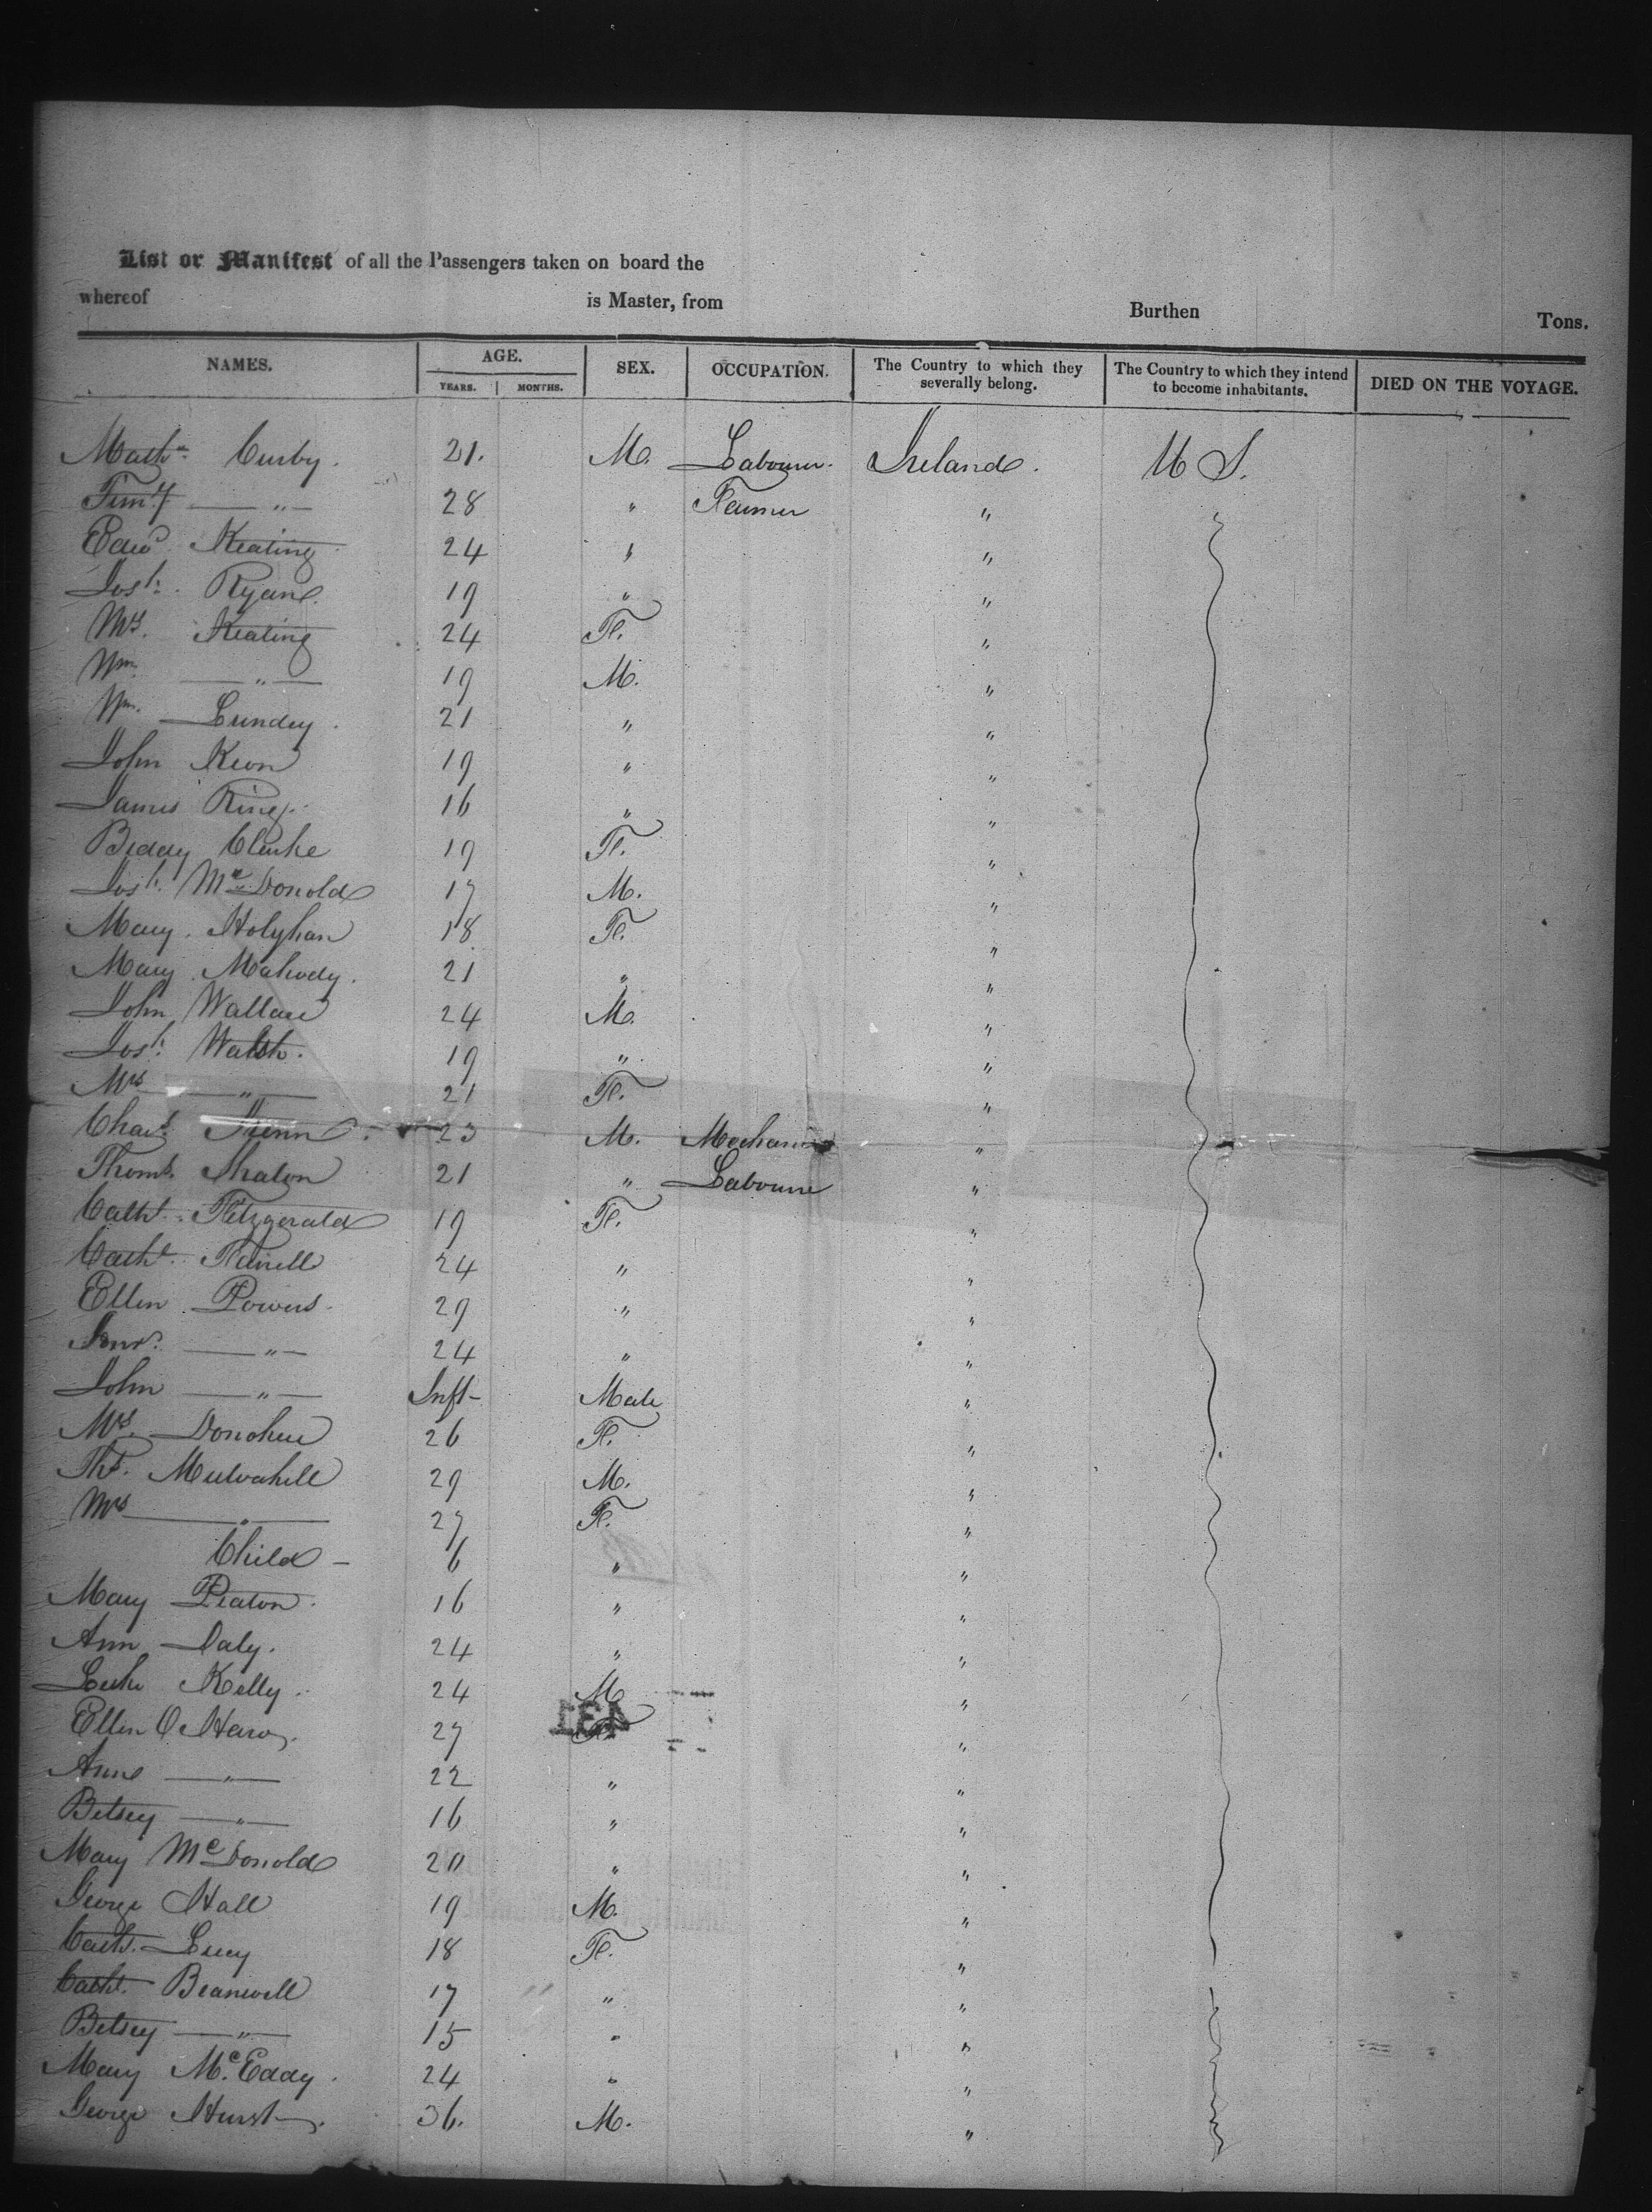 List or Manifest of all the Passengers taken on board the
whereof is Master, from Burthen Tons.
NAMES. AGE. SEX. OCCUPATION. The Country to which they severally belong. The Country to which they intend to become inhabitants. DIED ON THE VOYAGE.
YEARS. MONTHS.
Mathw. Curby. 21. M. Labourer. Ireland. U S.
Timy — " — 28 " Farmer "
Edwd Keating 24 " "
Josh. Ryan. 19 " "
Mrs. Keating 24 Fl. "
Wm. — " — 19 M. "
Wm. Lundey. 21 " "
John Keon 19 " "
James King. 16 " "
Biddy Clarke 19 Fl. "
Josh. McDonold 17 M. "
Mary. Holyhan 18 Fl. "
Mary Mahody. 21 " "
John Wallace 24 M. "
Josh. Walsh. 19 " "
Mrs — " — 21 Fl. "
Chas. 23 M. Mechanic "
Thoms. Shalon 21 " Labourer "
Cath. Fitzgerald 19 Fl. "
Cath. Farrell 24 " "
Ellen Powers. 29 " "
— " — 24 " "
John — " — Inft- Male "
Mrs. Donohue 26 Fl. "
Ths. Mulvahill 29 M. "
Mrs — " — 27 Fl. "
Child — 6 " "
Mary Peaton. 16 " "
Ann Daly. 24 " "
Luke Kelly. 24 M "
Ellen O Hara. 27 Fl. "
Anne — " — 22 " "
Betsey — " — 16 " "
Mary McDonold 20 " "
George Hall 19 M. "
Cath. Lucy 18 Fl. "
Cath. Branwell 17 " "
Betsey — " — 15 " "
Mary McEddy. 24 " "
George Hurst. 36. M. "